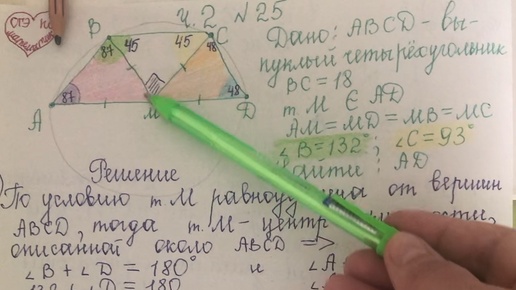 ОГЭ по математике
Ч. 2 №25
B 45 45 C
87 48
87 48
A M D
Дано: ABCD - вы-
пуклый четырёхугольник
BC = 18
т. M ∈ AD
AM = MD = MB = MC
∠B = 132° ; ∠C = 93°
: AD
Решение
По условию т. M от вершин
ABCD, тогда т. M - центр
описанной около ABCD =>
∠B + ∠D = 180° и ∠A
+ ∠D = 180